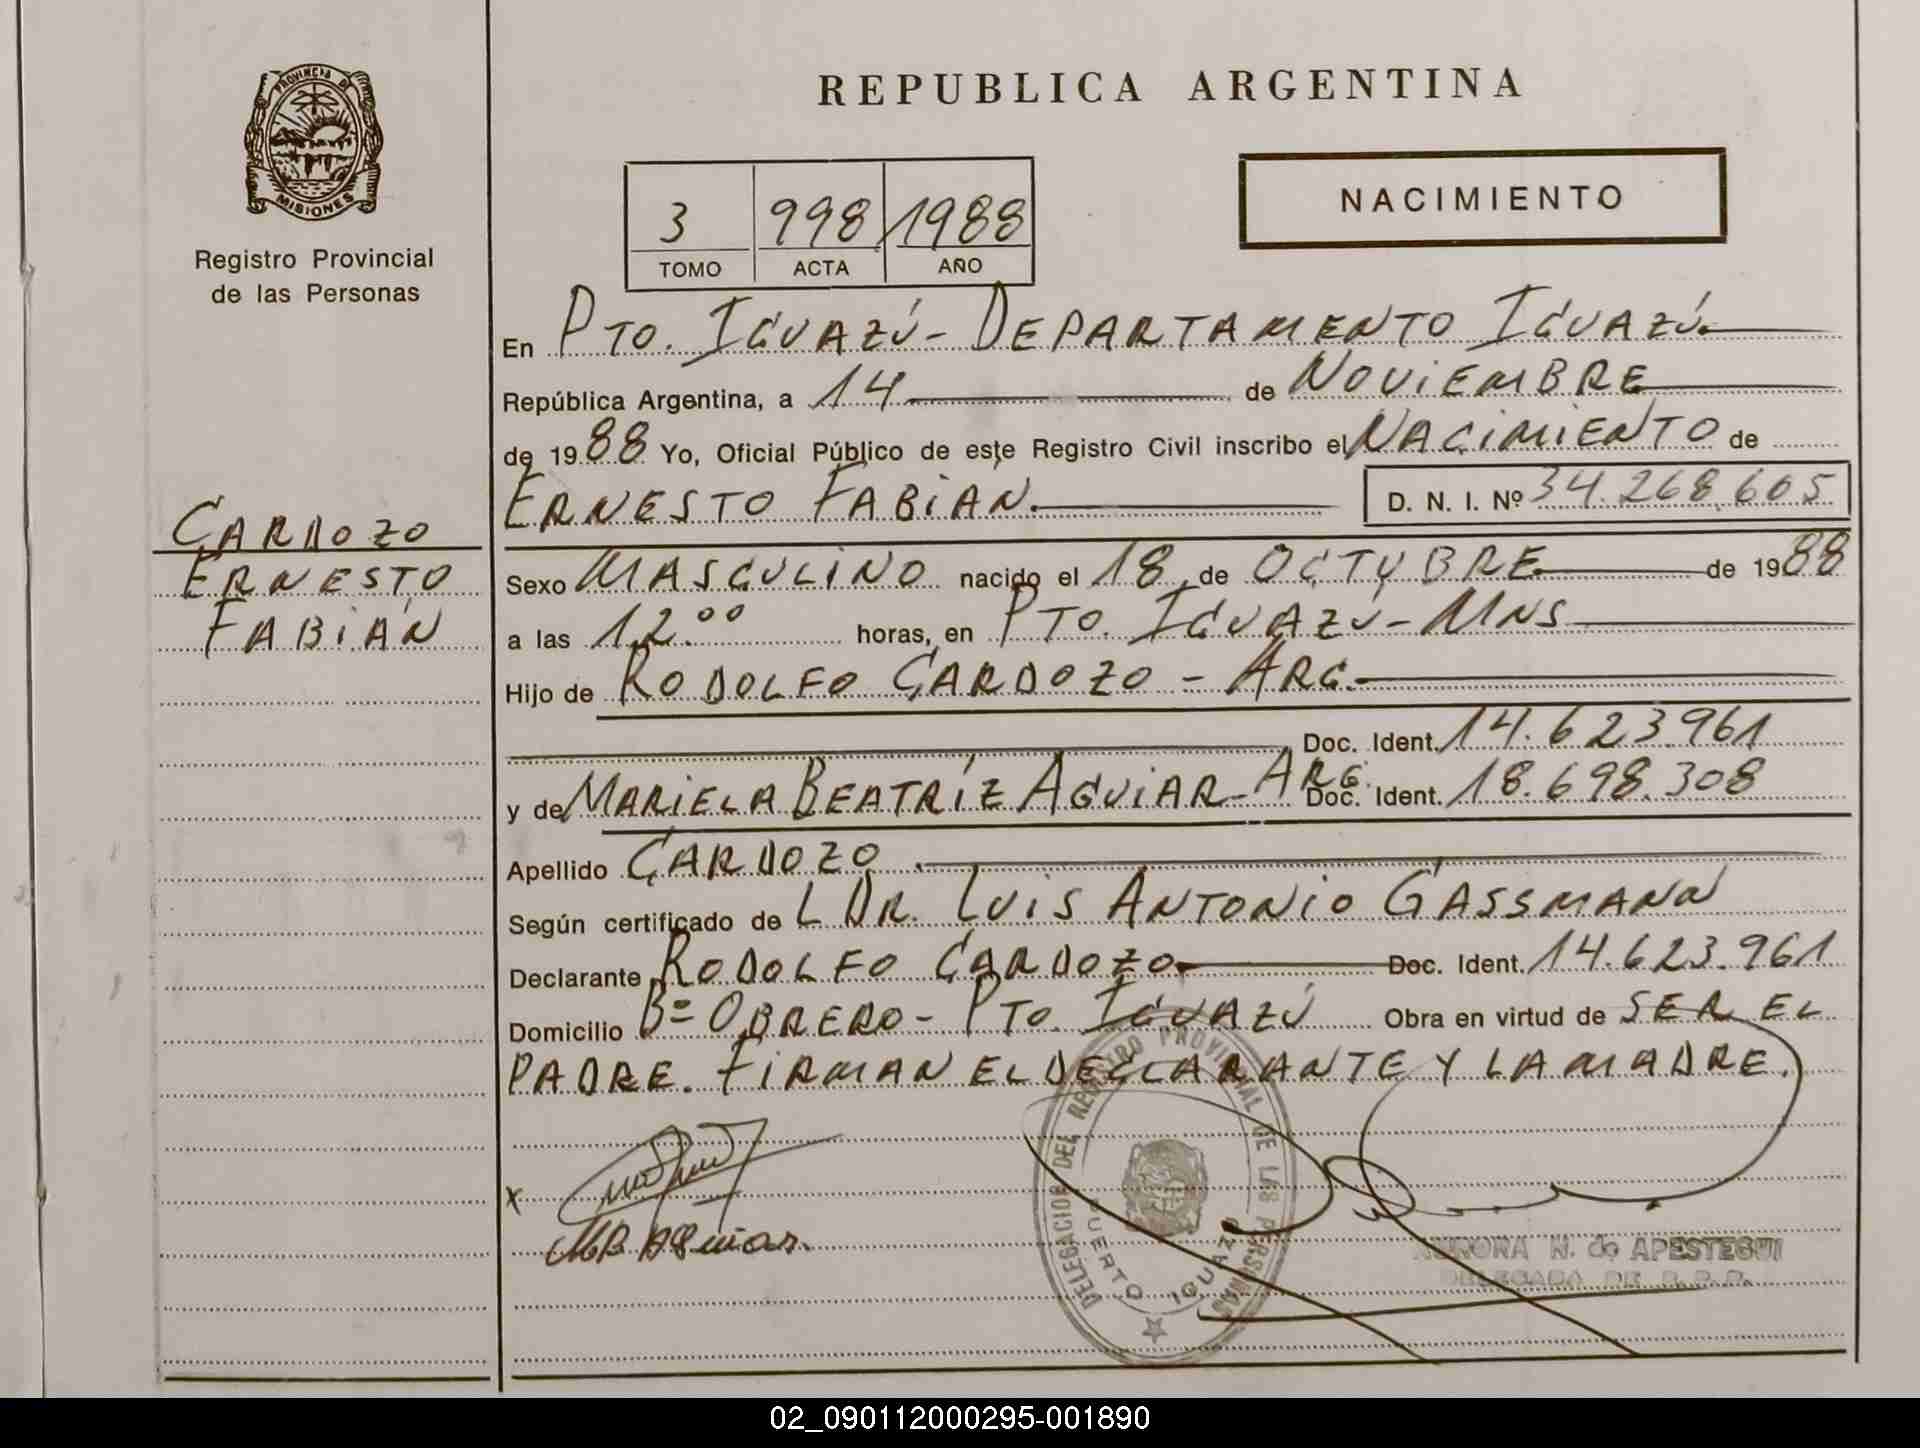 PROVINCIA DE
MISIONES
Registro Provincial
de las Personas
CARDOZO
ERNESTO
FABIÁN
REPUBLICA ARGENTINA
NACIMIENTO
3 998 1988
TOMO ACTA AÑO
En PTO. IGUAZÚ - DEPARTAMENTO IGUAZÚ.
República Argentina, a 14 de NOVIEMBRE
de 1988 Yo, Oficial Público de este Registro Civil inscribo el NACIMIENTO de
ERNESTO FABIÁN. D. N. I. Nº 34.268.605
Sexo MASCULINO nacido el 18 de OCTUBRE de 1988
a las 12.00 horas, en PTO. IGUAZU - MNS
Hijo de RODOLFO CARDOZO - ARG.
Doc. Ident. 14.623.961
y de MARIELA BEATRÍZ AGUIAR - ARG. Doc. Ident. 18.698.308
Apellido CARDOZO.
Según certificado de L DR. LUIS ANTONIO GASSMANN
Declarante RODOLFO CARDOZO Doc. Ident. 14.623.961
Domicilio Bº OBRERO - PTO. IGUAZÚ Obra en virtud de SER EL
PADRE. FIRMAN EL DECLARANTE Y LA MADRE.
X
MB Aguiar.
DELEGACION DEL REGISTRO PROVINCIAL DE LAS PERSONAS
PUERTO IGUAZU
AURORA N. de APESTEGUI
DELEGADA DE R.P.P.
02_090112000295-001890